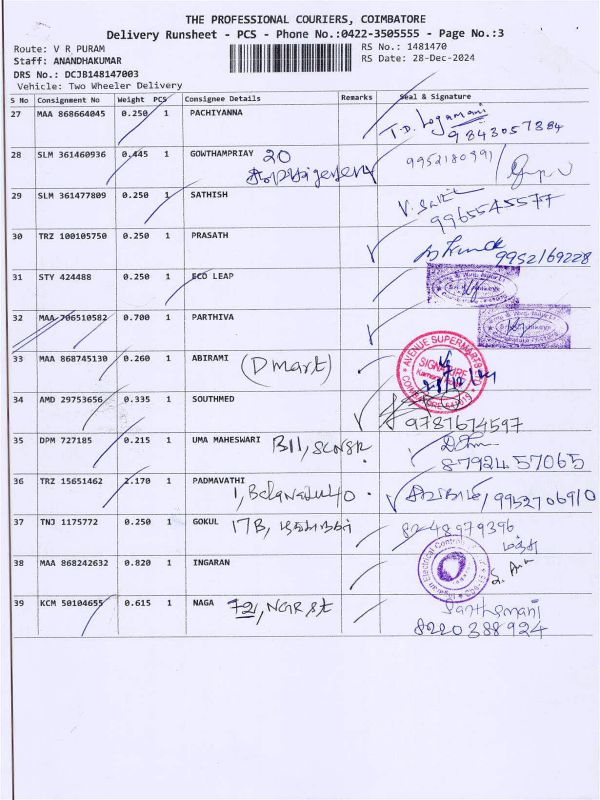 THE PROFESSIONAL COURIERS, COIMBATORE
Delivery Runsheet - PCS - Phone No.:0422-3505555 - Page No.:3
Route: V R PURAM
RS No.: 1481470
Staff: ANANDHAKUMAR
RS Date: 28-Dec-2024
DRS No.: DCJB148147003
Vehicle: Two Wheeler Delivery
S No Consignment No Weight PCS Consignee Details Remarks Seal & Signature
27 MAA 868664045 0.250 1 PACHIYANNA T.D. Logamani
9843057384
28 SLM 361460936 0.445 1 GOWTHAMPRIAY 20
9952180991
29 SLM 361477809 0.250 1 SATHISH
9965545577
30 TRZ 100105750 0.250 1 PRASATH
9952169228
31 STY 424488 0.250 1 ECO LEAP
32 MAA 706510582 0.700 1 PARTHIVA
33 MAA 868745130 0.260 1 ABIRAMI (Dmart)
AVENUE SUPERMARTS
SIGNATURE
34 AMD 29753656 0.335 1 SOUTHMED
9787674597
35 DPM 727185 0.215 1 UMA MAHESWARI B11,
8792457065
36 TRZ 15651462 2.170 1 PADMAVATHI
9952706910
37 TNJ 1175772 0.250 1 GOKUL 17B,
8248979396
38 MAA 868242632 0.820 1 INGARAN
Electrical
39 KCM 50104655 0.615 1 NAGA 72, NGR St
8220388924